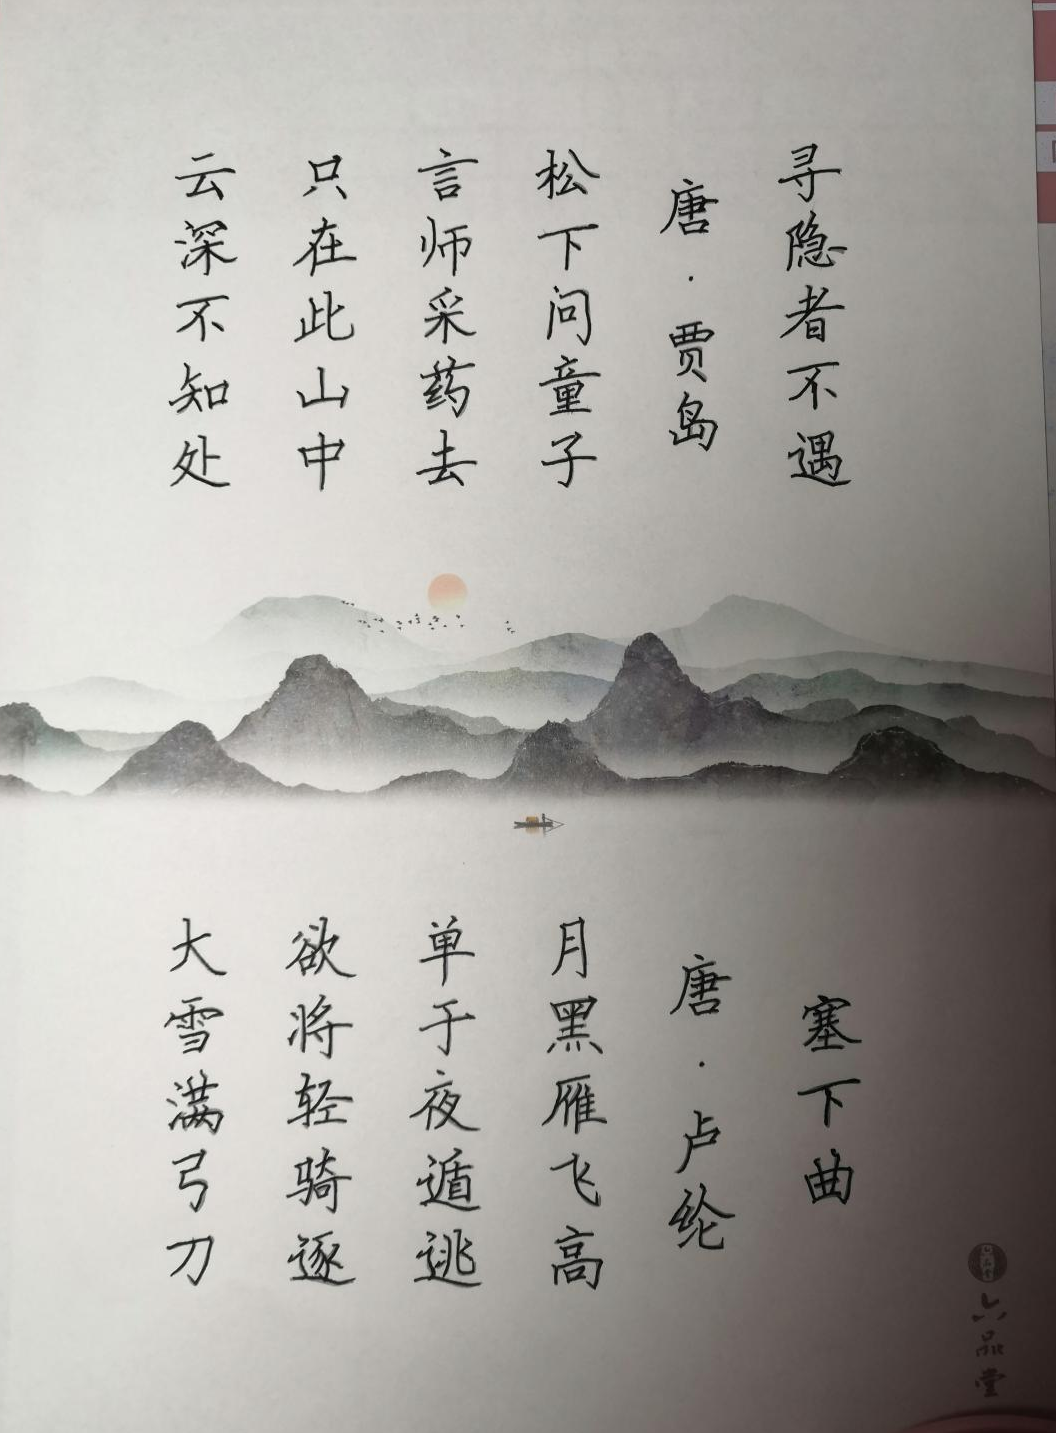 寻隐者不遇
唐·贾岛
松下问童子
言师采药去
只在此山中
云深不知处
塞下曲
唐·卢纶
月黑雁飞高
单于夜遁逃
欲将轻骑逐
大雪满弓刀
六品堂